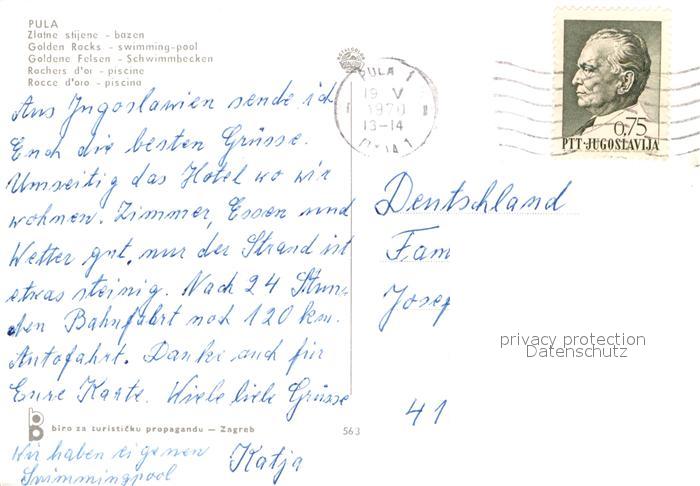 PULA
Zlatne stijene - bazen
Golden Rocks - swimming-pool
Goldene Felsen - Schwimmbecken
Rochers d'or - piscine
Rocce d'oro - piscina
Aus Jugoslawien sende ich
Euch die besten Grüsse.
Umseitig das Hotel wo wir
wohnen. Zimmer, Essen und
Wetter gut, nur der Strand ist
etwas steinig. Nach 24 Stun-
den Bahnfahrt noch 120 km.
Autofahrt. Danke auch für
Eure Karte. Viele liebe Grüsse
Katja
Wir haben eigenen
Swimmingpool
biro za turističku propagandu — Zagreb
563
PULA 1
19 V
1970
13-14
0,75
PTT·JUGOSLAVIJA
Deutschland
Fam
Josef
privacy protection
Datenschutz
41